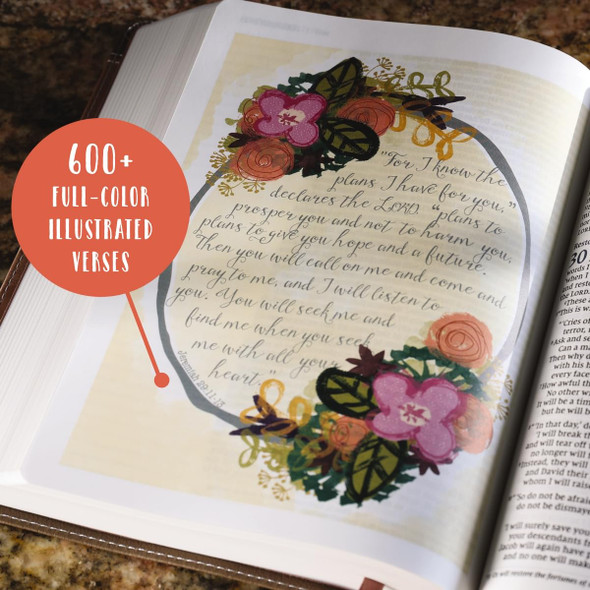 600+
FULL-COLOR
ILLUSTRATED
VERSES
"For I know the
plans I have for you,"
declares the LORD, "plans to
prosper you and not to harm you,
plans to give you hope and a future.
Then you will call on me and come and
pray to me, and I will listen to
you. You will seek me and
find me when you seek
me with all your
heart."
Jeremiah 29:11-13
30
words I
when I
and resto
the LORD.
"These a
"This is w
"'Cries of
terror,
Ask and se
Can a ma
Then why do
with his h
every face
How awful th
No other w
It will be a tim
but he will b
"'In that day,' d
'I will break th
and will tear off
no longer will
Instead, they will
and David their
whom I will raise
"'So do not be afrai
do not be dismaye
'I will surely save you
your descendants f
Jacob will again have p
and no one will ma
will restore the fortunes of